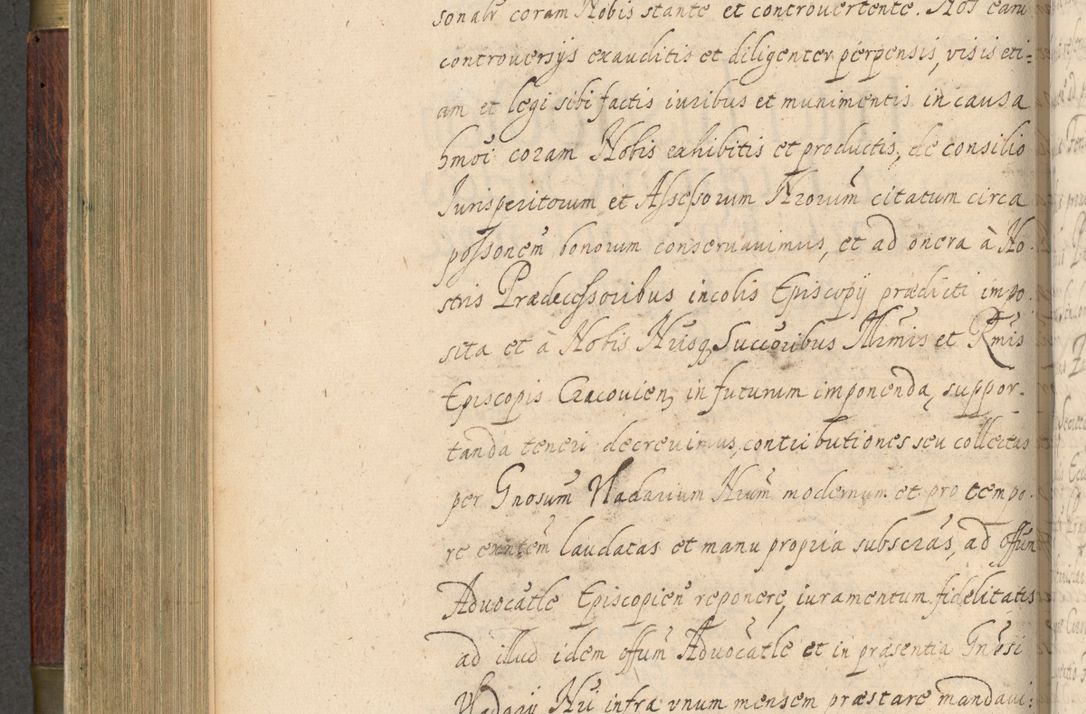 sonalr coram Nobis stante et controuertente. Nos earu
controuersijs exauditis et diligenter perpensis, visis eti=
am et legi sibi factis iuribus et munimentis in causa
hmoi coram Nobis exhibitis et productis, de consilio
Jurisperitorum et Assessorum Nrorum citatum circa
possonem bonorum conseruauimus, et ad onera à No
stris Prædecessoribus incolis Episcopij prædicti impo
sita et à Nobis Nrisq Succoribus Illrmis et Rmis
Episcopis Cracouien, in futurum imponenda, suppor-
tanda teneri decreuimus, contributiones seu collectas
per Gnosum Wadarium Nrum modernum et pro tempo.
re exntem laudatas et manu propria subscras, ad offun
Aduocatle Episcopien reponere, iuramentum fidelitatis
ad illud idem offum Aduocatle et in præsentia Gnosi
Wadarij Nri infra vnum mensem præstare mandaui: